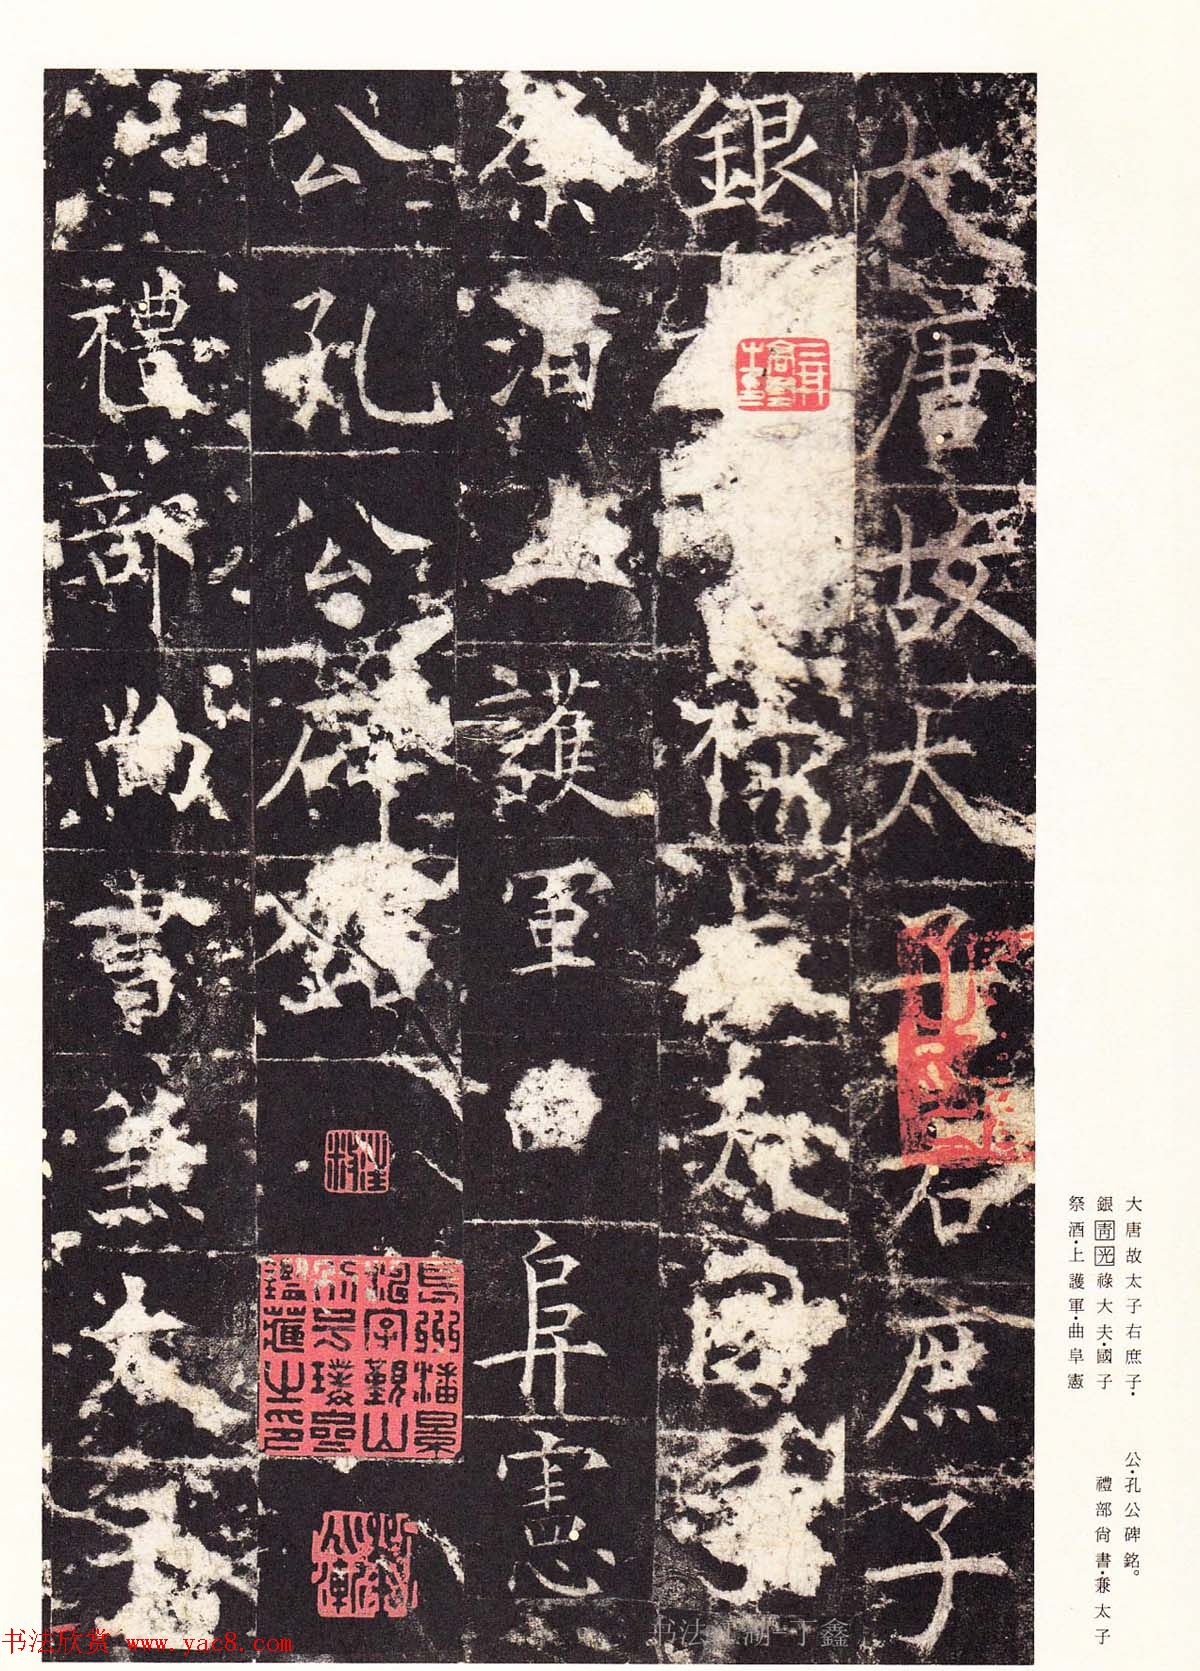 大唐故太子右庶子
銀祿大夫國子
祭酒上護軍阜憲
公孔公碑銘
禮部尚書兼太子
大唐故太子右庶子·
銀靑光祿大夫·國子
祭酒·上護軍·曲阜憲
公·孔公碑銘。
禮部尙書·兼太子
书法欣赏 www.yac8.com
书法江湖-丁鑫